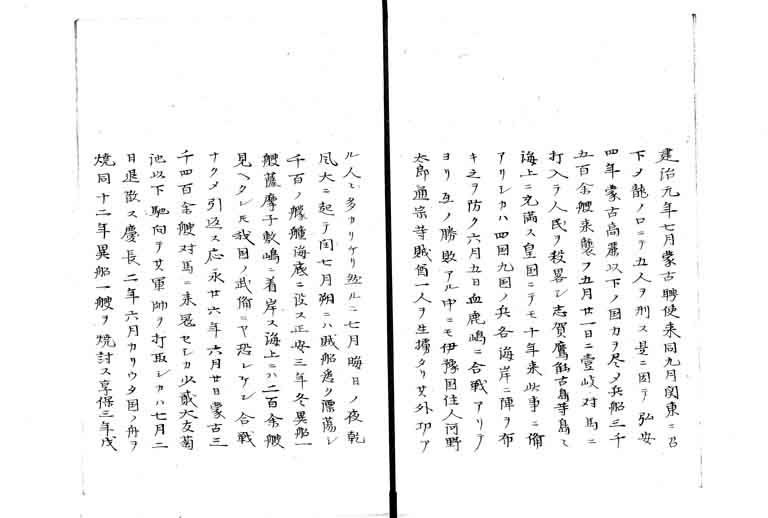 建治元年七月蒙古聘使来同九月関東ニ召
下メ龍ノロニテ五人ヲ刑ス是ニ因テ弘安
四年蒙古高麗以下ノ国力ヲ尽メ兵船三千
五百余艘来襲フ五月廿一日ニ壹岐対馬ニ
打入テ人民ヲ殺畧シ志賀鷹能古島等島々
海上ニ充満ス皇国ニテモ十年来此事ニ備
アリシカハ四国九国ノ兵各海岸ニ陣ヲ布
キ之ヲ防ク六月五日血鹿嶋ニ合戦アリテ
ヨリ互ノ勝敗アル中ニモ伊豫国住人河野
太郎通宗等賊酋一人ヲ生擒タリ其外功ア
ル人々多カリケリ然ルニ七月晦日ノ夜乾
風大ニ起テ閏七月朔ニハ賊船悉ク漂蕩シ
千百ノ艨艟海底ニ没ス正安三年冬異船一
艘薩摩子敷嶋ニ着岸ス海上ニハ二百余艘
見ヘタレ𪜈我国ノ武備ニヤ恐レケン合戦
ナクメ引返ス応永廿六年六月廿日蒙古三
千四百余艘対馬ニ来冦セシカ少貳大友菊
池以下馳向テ其軍帥ヲ打取シカハ七月二
日退散ス慶長二年六月カリウタ国ノ舟ヲ
焼同十二年異船一艘ヲ焼討ス享保三年戊